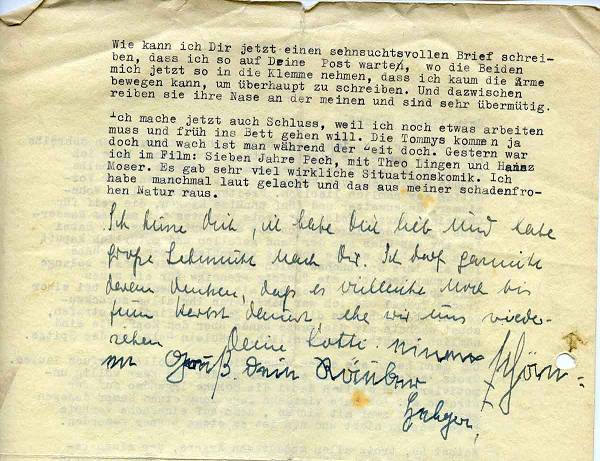 Wie kann ich Dir jetzt einen sehnsuchtsvollen Brief schrei-
ben, dass ich so auf Deine Post warten, wo die Beiden
mich jetzt so in die Klemme nehmen, dass ich kaum die Arme
bewegen kann, um überhaupt zu schreiben. Und dazwischen
reiben sie ihre Nase an der meinen und sind sehr übermütig.
Ich mache jetzt auch Schluss, weil ich noch etwas arbeiten
muss und früh ins Bett gehen will. Die Tommys kommen ja
doch und wach ist man während der Zeit doch. Gestern war
ich im Film: Sieben Jahre Pech, mit Theo Lingen und Hannz
Moser. Es gab sehr viel wirkliche Situationskomik. Ich
habe manchmal laut gelacht und das aus meiner schadenfro-
hen Natur raus.
Ich küsse Dich, ich habe Dich lieb und habe
große Sehnsucht nach Dir. Ich darf garnicht
daran denken, daß es vielleicht noch bis
zum Herbst dauert ehe wir uns wieder-
sehen Deine Lotti.
Gruß. Dein Räuber